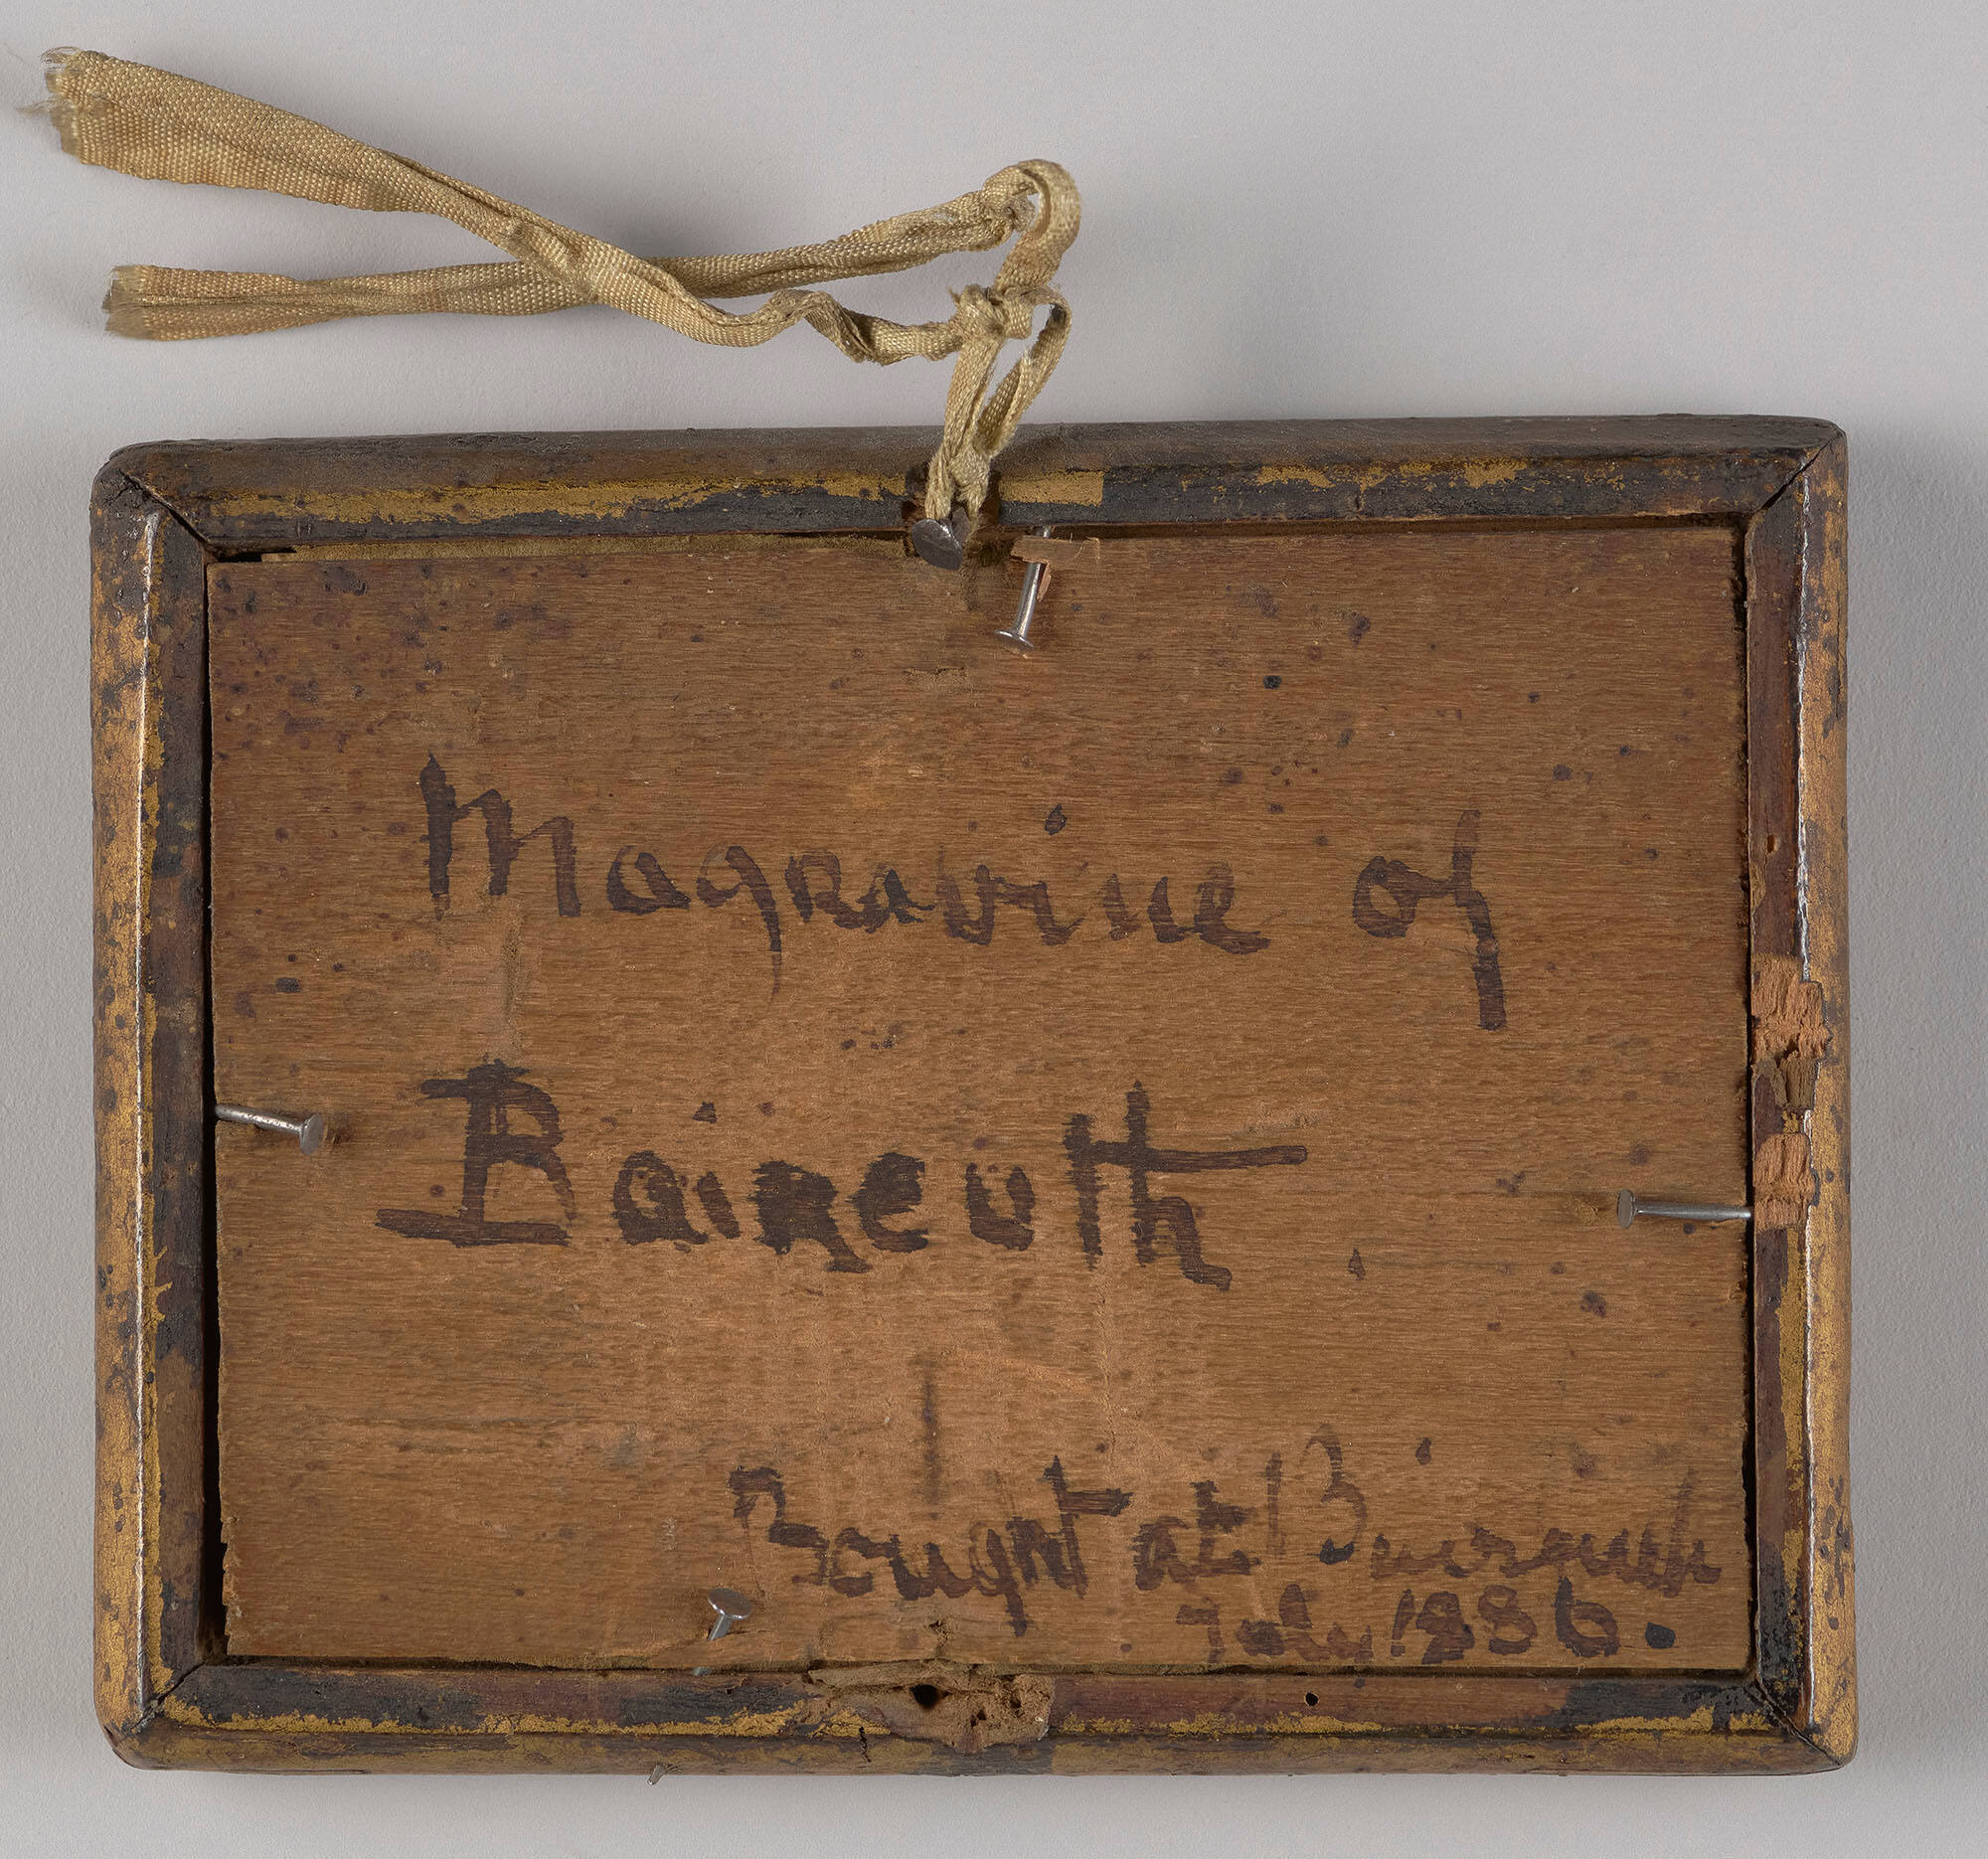 Magravine of
Baireuth
Bought at Baireuth
July 1886.